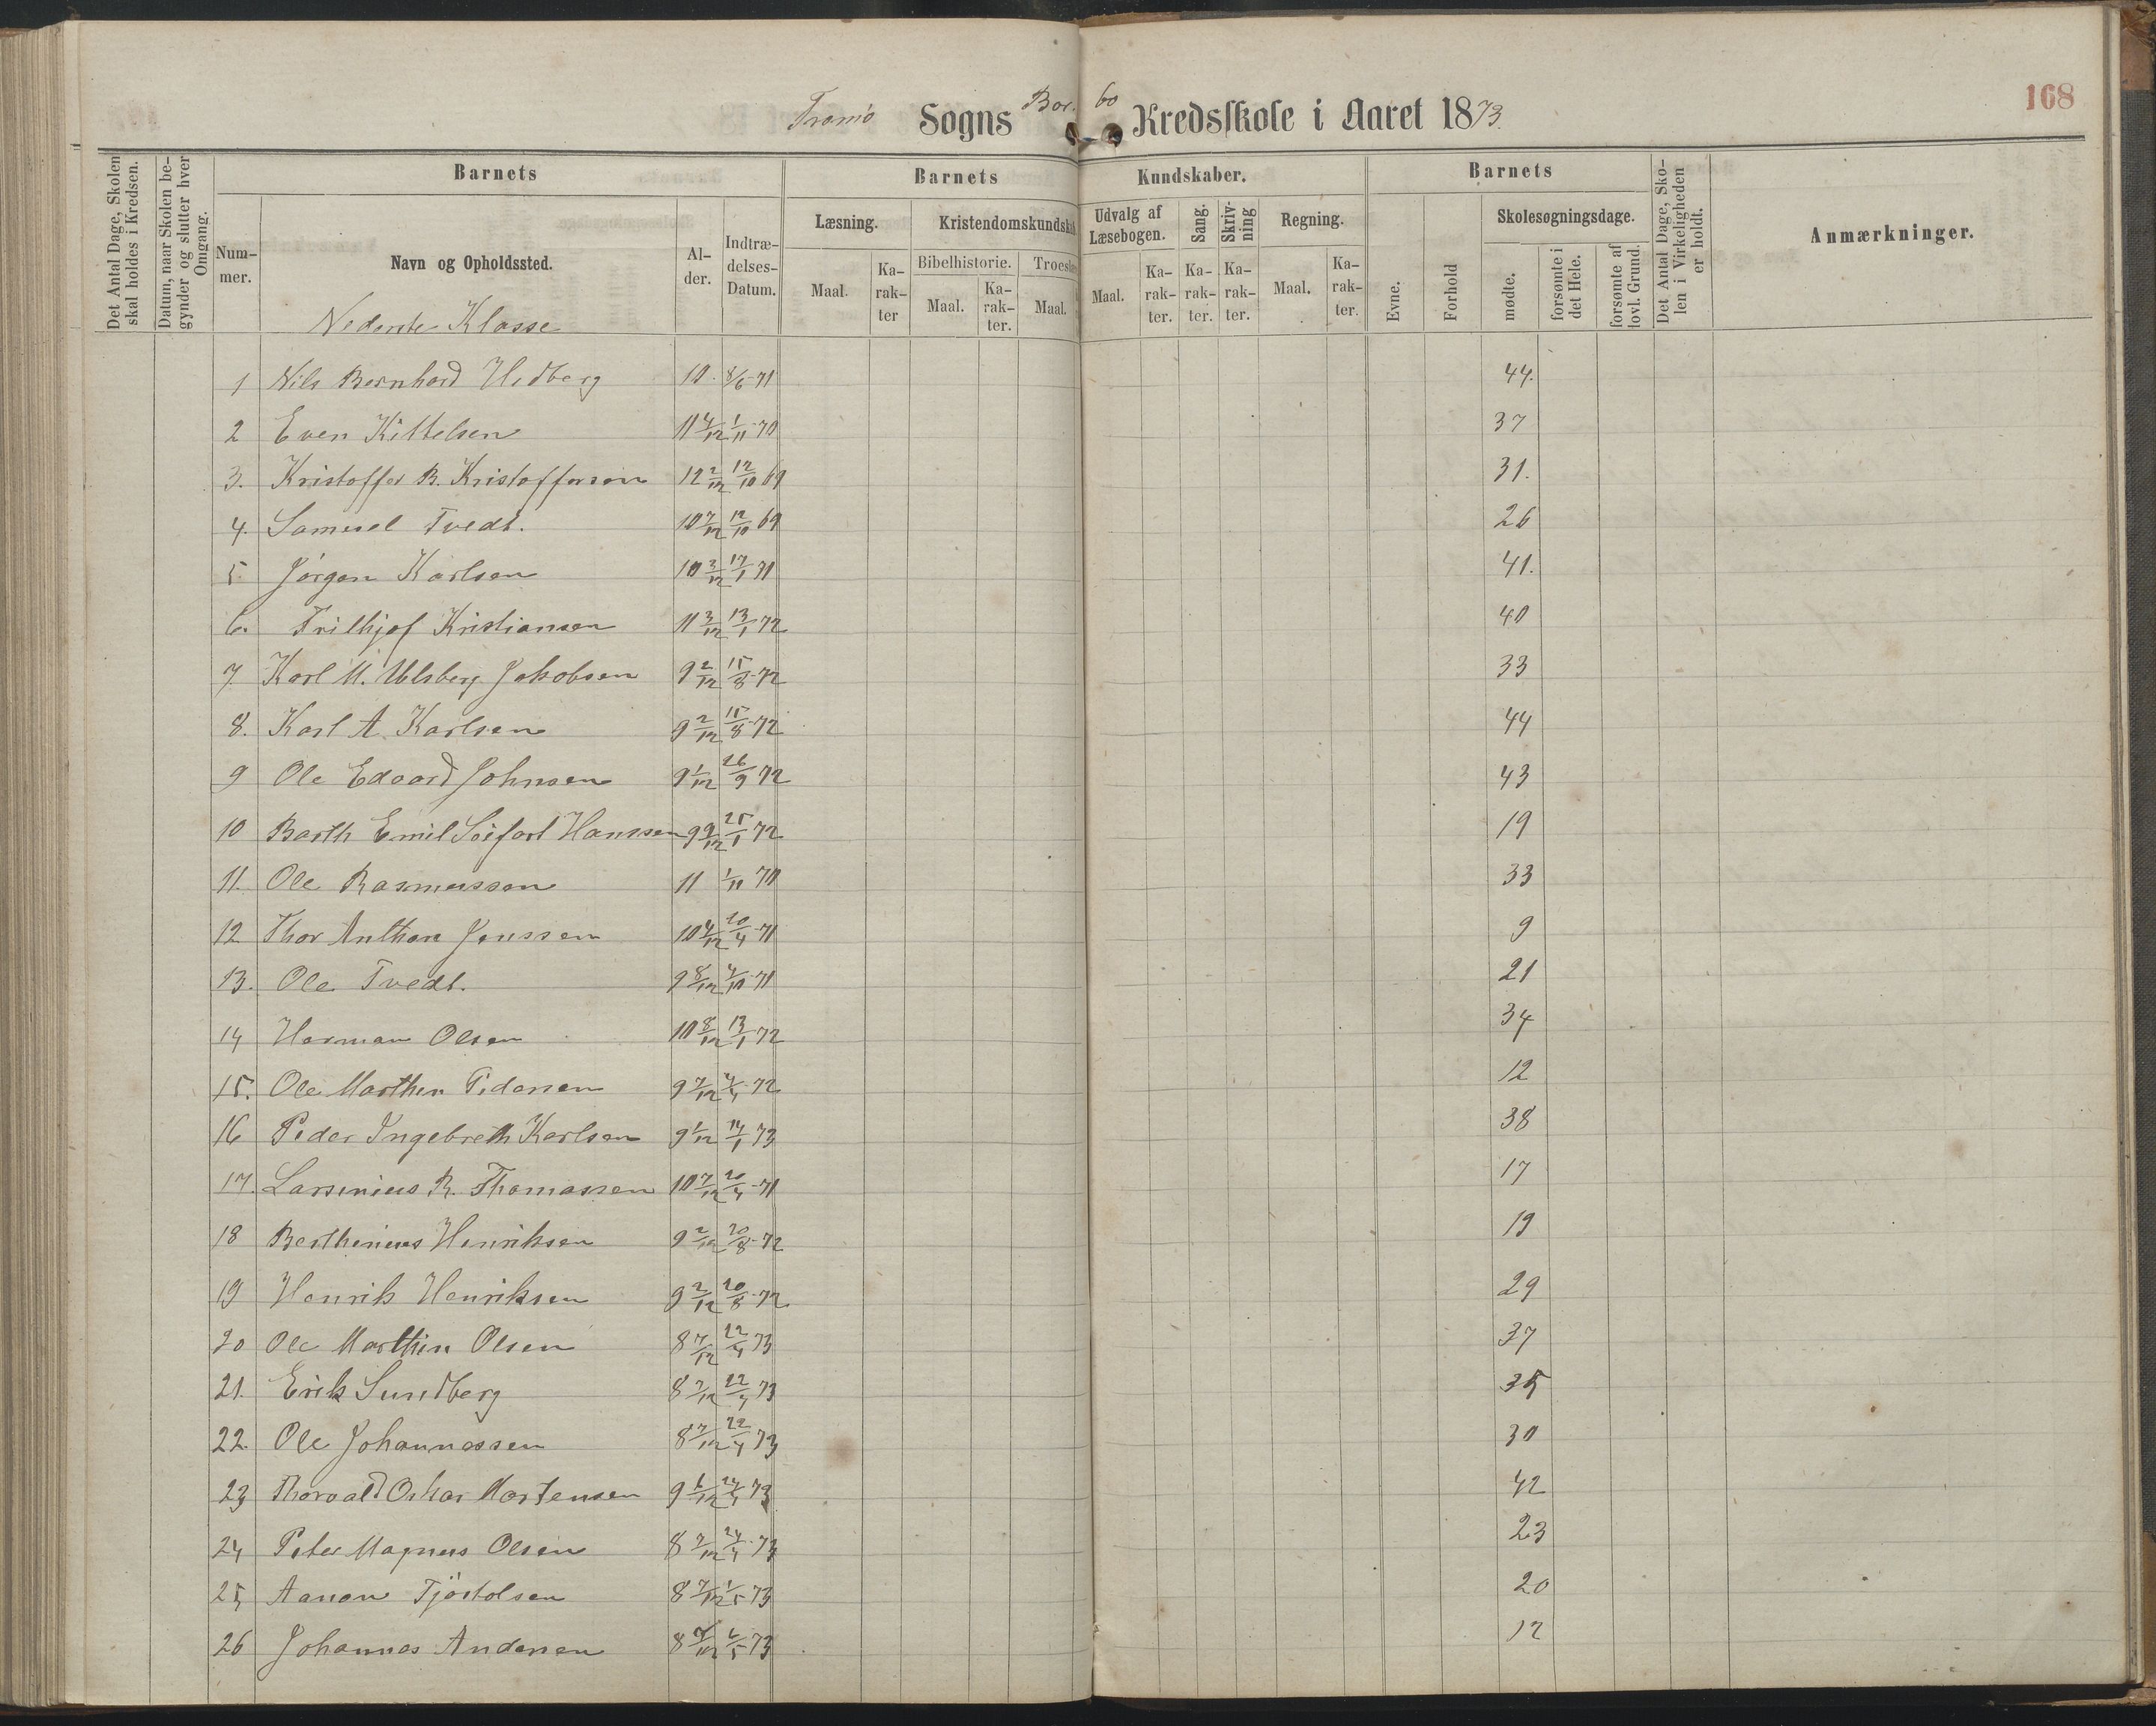 168
Tromö Sogns Bor bo Kredsskole i Aaret 1873.
Det Antal Dage, Skolen skal holdes i Kredsen.
Datum, naar Skolen begynder og slutter hver Omgang.
Barnets
Barnets Kundskaber.
Barnets
Det Antal Dage, Skolen i Virkeligheden er holdt.
Anmærkninger.
Nummer.
Navn og Opholdssted.
Alder.
Indtrædelses-Datum.
Læsning.
Kristendomskundska
Udvalg af Læsebogen.
Sang.
Skrivning
Regning.
Skolesøgningsdage.
Bibelhistorie.
Troes
Maal. Karakter
Maal. Karakter.
Maal.
Maal. Karakter.
Karakter.
Karakter.
Maal. Karakter.
Evne.
Forhold
mødte.
forsømte i det Hele.
forsømte af lovl. Grund.
Nederste Klasse
1 Nils Bernhard Hedberg 10 8/6-71 44.
2 Even Kittelsen 11 4/12 1/11-70 37
3. Kristoffer B. Kristoffersen 12 2/12 12/10 69 31.
4. Samuel Tvedt. 10 7/12 12/10 69 26
5 Jörgen Karlsen 10 3/12 17/1 71 41.
6. Frithjof Kristiansen 11 3/12 13/1-72 40
7. Karl M. Ulsberg Jakobsen 9 2/12 15/8-72 33
8. Karl A. Karlsen 9 2/12 15/8-72 44
9 Ole Edvard Johnsen 9 1/12 26/9 72 43
10 Barth Emil Seifart Hanssen 9 9/12 25/1 72 19
11. Ole Rasmussen 11 1/11 70 33
12 Thor Anthon Jenssen 10 4/12 20/4-71 9
13. Ole Tvedt. 9 8/12 4/10-71 21
14 Herman Olsen 10 8/12 13/1-72 34
15. Ole Marthin Pedersen 9 7/12 4/4-72 12
16 Peder Ingebreth Karlsen 9 1/12 14/1 73 38
17. Larsenius R. Thomassen 10 7/12 20/4-71 17
18 Berthinius Henriksen 9 2/12 20/8-72 19
19 Henrik Henriksen 9 2/12 20/8-72 29
20 Ole Marthin Olsen 8 7/12 22/4 73 37
21. Erik Sundberg 8 7/12 22/4 73 35
22. Ole Johannessen 8 7/12 22/4 73 30
23 Thorvald Oskar Mortensen 9 1/12 24/4 73 42
24 Peter Magnus Olsen 8 7/12 24/4-73 23
25 Aanon Tjöstolsen 8 7/12 1/5 73 20
26 Johannes Andersen 8 6/5 73 12